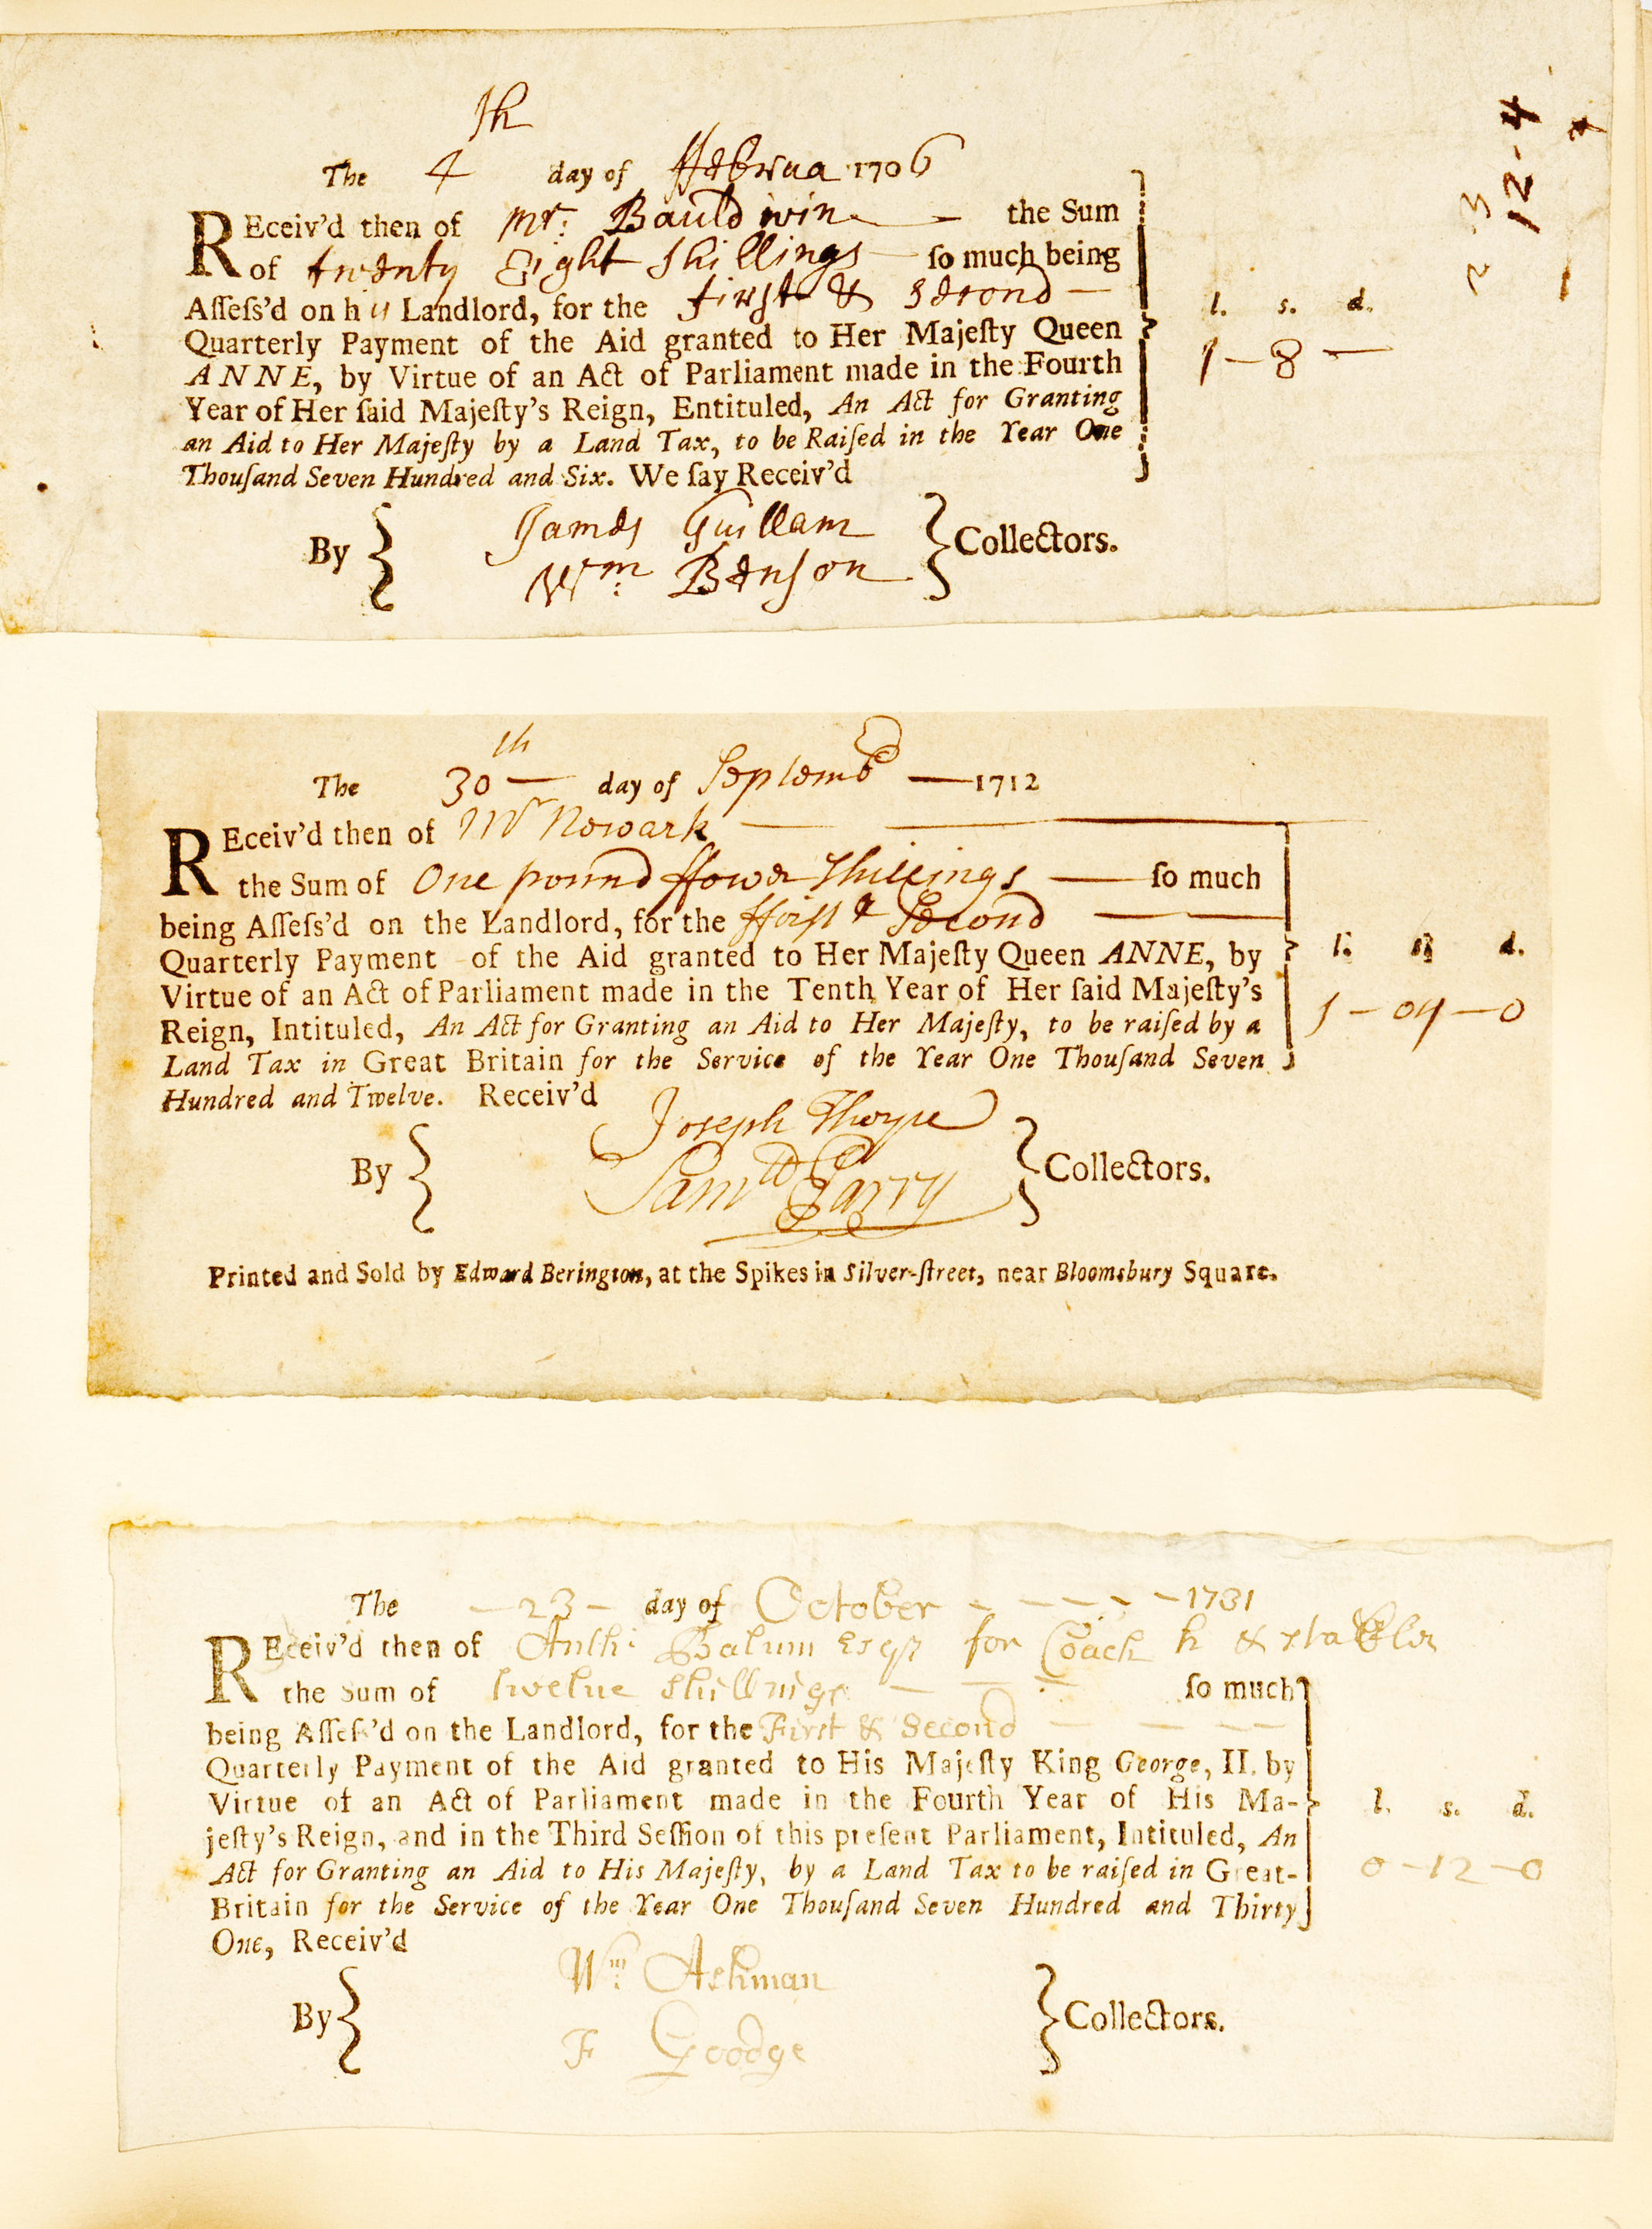 th
The 4 day of ffebrua 1706
REceiv'd then of mr: Bauldwin — the Sum
of twenty Eight shillings — ſo much being
Aſſeſs'd on his Landlord, for the first & second —
Quarterly Payment of the Aid granted to Her Majeſty Queen
ANNE, by Virtue of an Act of Parliament made in the Fourth
Year of Her ſaid Majeſty's Reign, Entituled, An Act for Granting
an Aid to Her Majeſty by a Land Tax, to be Raiſed in the Year One
Thouſand Seven Hundred and Six. We ſay Receiv'd
l. s. d.
1 – 8 —
By James Guillam
Wm: Benson
Collectors.
12 - 4
th
The 30 — day of Septemb — 1712
REceiv'd then of Mr Nowark —
the Sum of One pound ffower Shillings — ſo much
being Aſſeſs'd on the Landlord, for the ffirst & Second —
Quarterly Payment of the Aid granted to Her Majeſty Queen ANNE, by
Virtue of an Act of Parliament made in the Tenth Year of Her ſaid Majeſty's
Reign, Intituled, An Act for Granting an Aid to Her Majeſty, to be raiſed by a
Land Tax in Great Britain for the Service of the Year One Thouſand Seven
Hundred and Twelve. Receiv'd
l. s. d.
1 – 04 – 0
By Joseph Thorpe
Samll Parry
Collectors.
Printed and Sold by Edward Berington, at the Spikes in Silver-ſtreet, near Bloomsbury Square.
The – 23 – day of October - - - - 1731
REceiv'd then of Anth: Balum Esqr for Coach h & stables
the Sum of twelve shillings — ſo much
being Aſſeſs'd on the Landlord, for the First & Second —
Quarterly Payment of the Aid granted to His Majeſty King George, II. by
Virtue of an Act of Parliament made in the Fourth Year of His Ma-
jeſty's Reign, and in the Third Seſſion of this preſent Parliament, Intituled, An
Act for Granting an Aid to His Majeſty, by a Land Tax to be raiſed in Great-
Britain for the Service of the Year One Thouſand Seven Hundred and Thirty
One, Receiv'd
l. s. d.
0 – 12 – 0
By Wm: Ashman
F Goodge
Collectors.